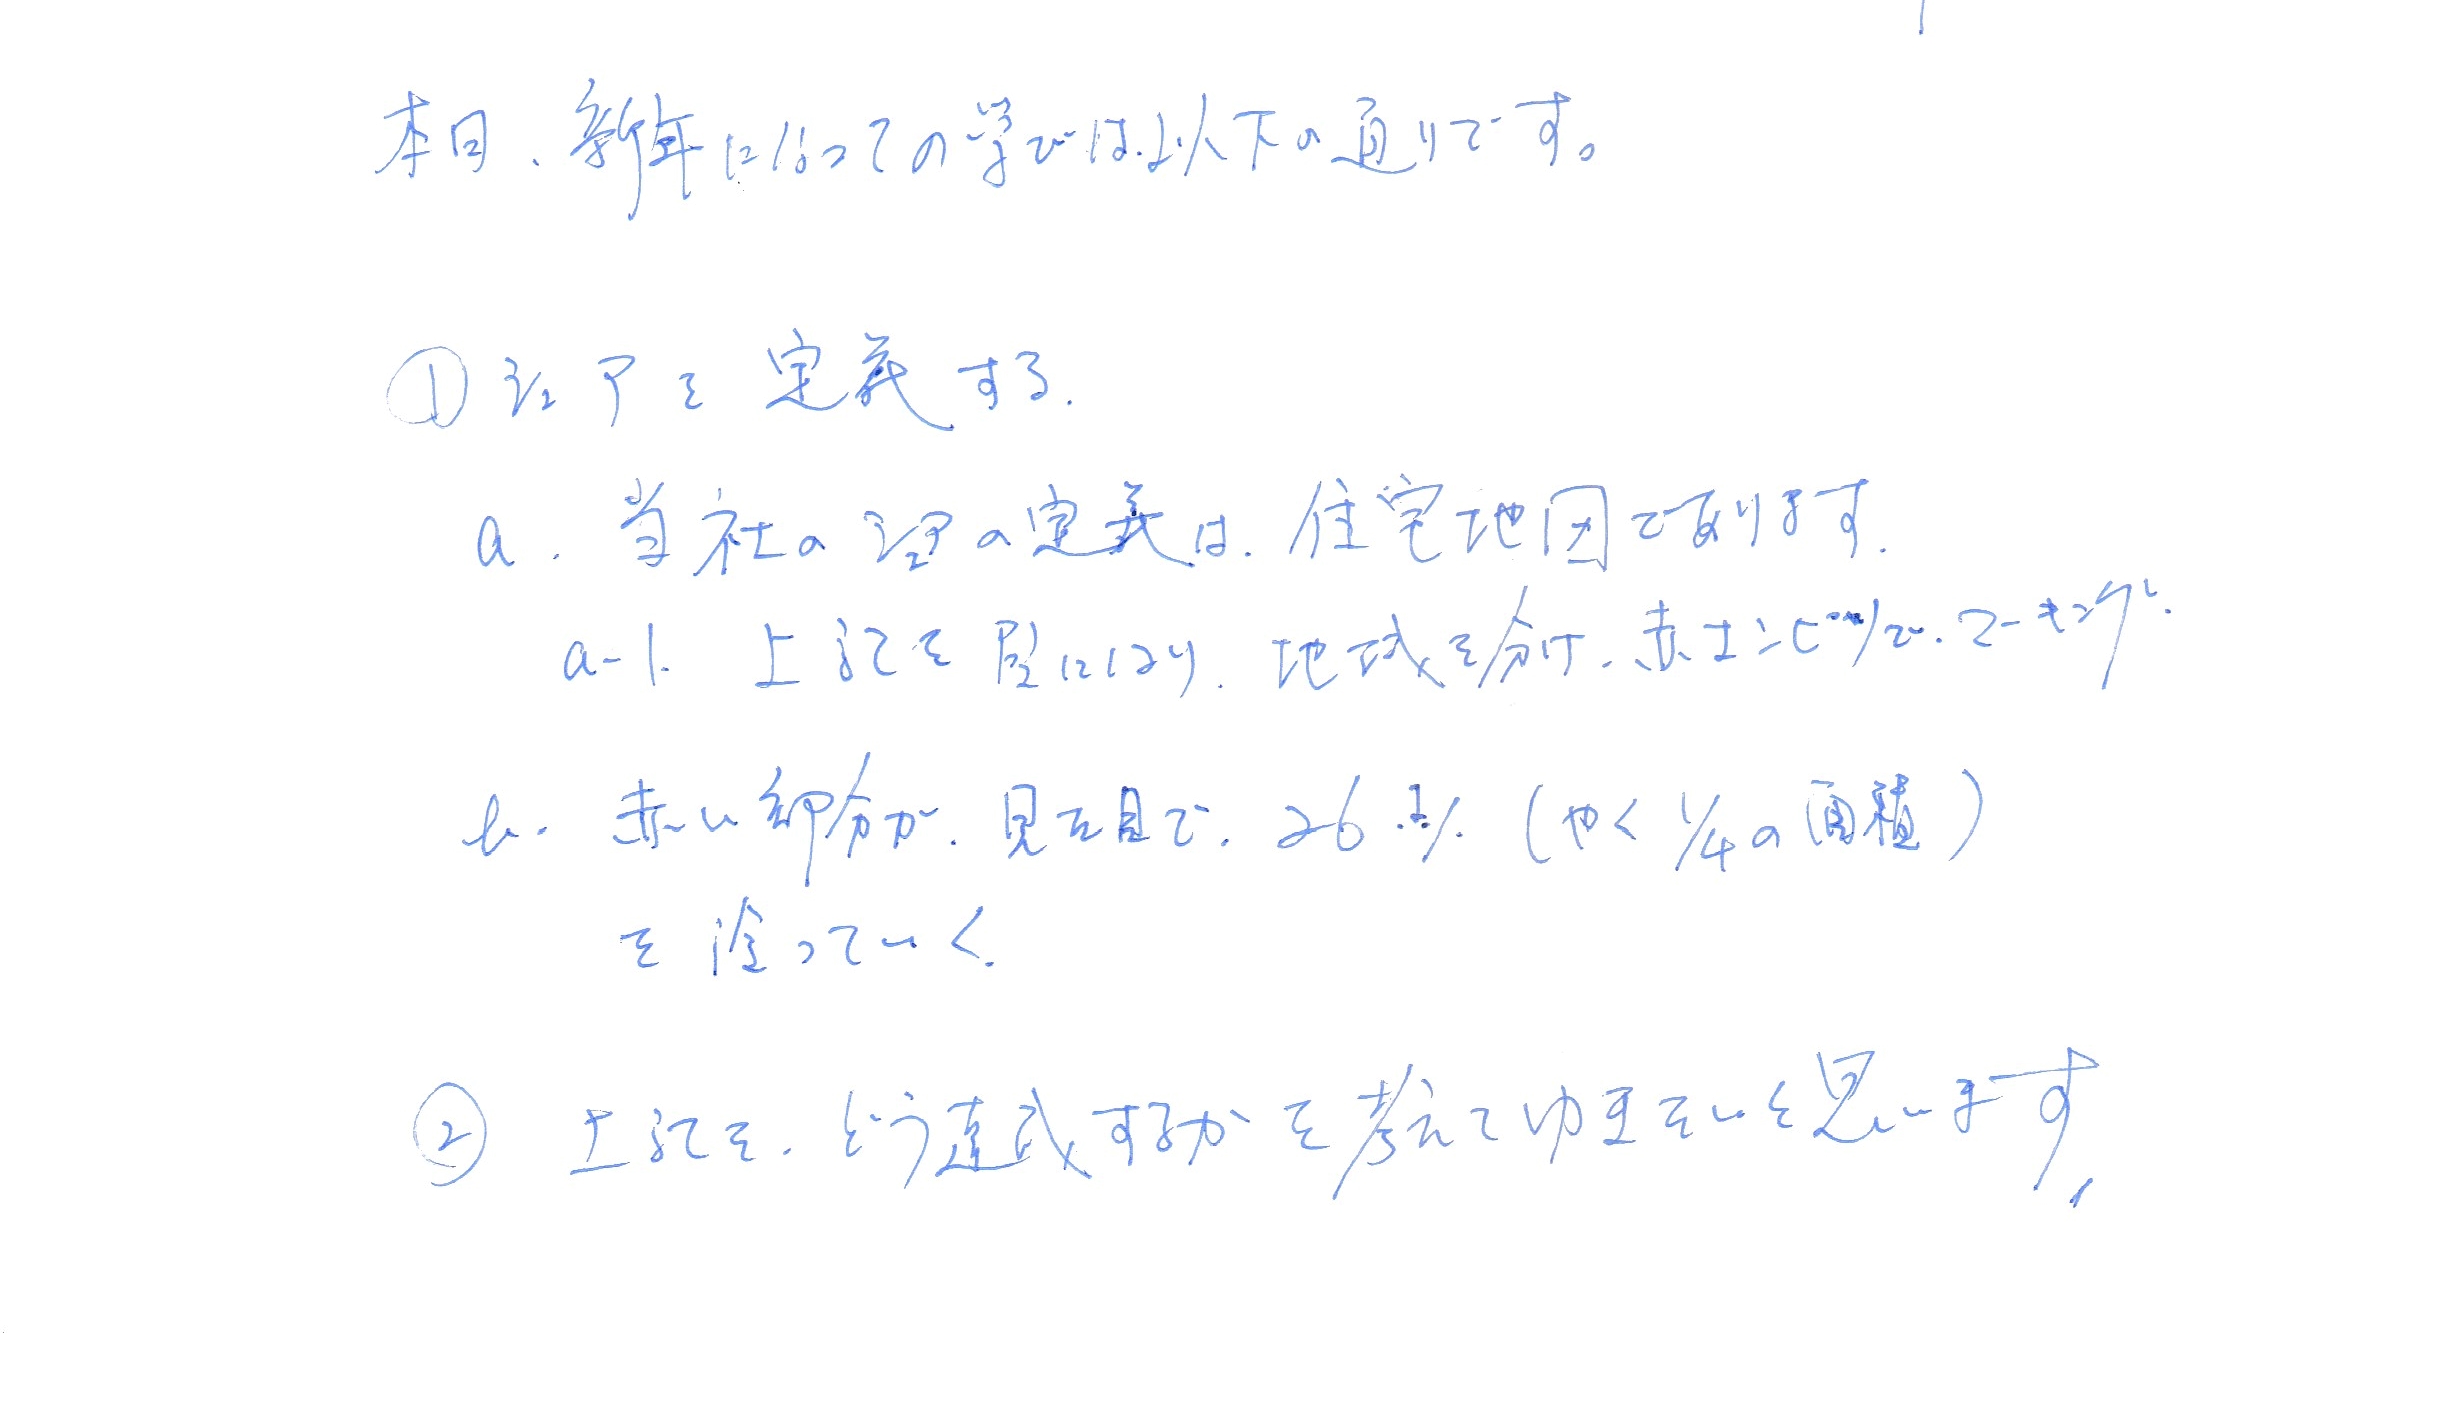 本日、新年になっての学びは以下の通りです。
① シェアを定義する。
a. 当社のシェアの定義は、住宅地図であります。
a-1. 上記を壁にはり、地域を分け、赤エンピツで、マーキング。
b. 赤い部分が、見た目で、26%(やく1/4の面積)
を塗っていく。
② 上記を、どう達成するかを考えてゆきたいと思います。